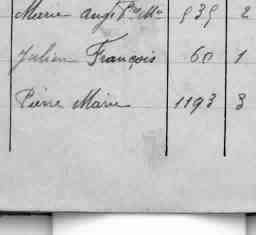 Marie ang: Pre Mie 535 2
Julien François 60 1
Pierre Marie 1193 3